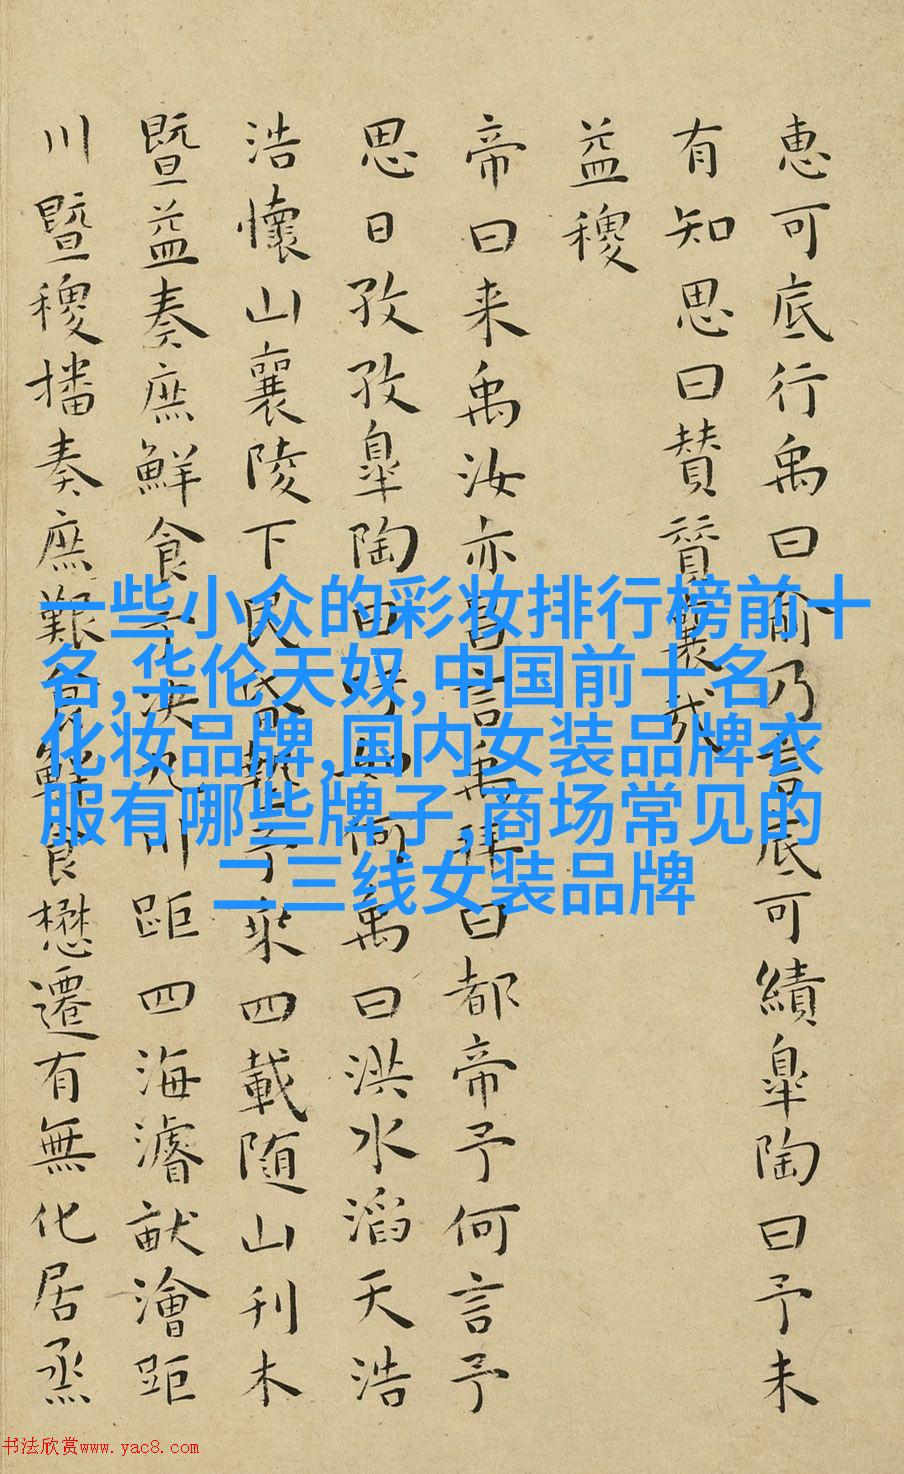 惠可底行禹曰俞乃言底可績皐陶曰予未
有知思曰賛賛襄哉
益稷
帝曰来禹汝亦昌言禹拜曰都帝予何言予
思日孜孜皐陶曰吁如何禹曰洪水滔天浩
浩懷山襄陵下民昏墊予乘四載随山刊木
暨益奏庶鮮食予决九川距四海濬畎澮距
川暨稷播奏庶艱食鮮食懋遷有無化居烝
一些小众的彩妆排行榜前十
名,华伦天奴,中国前十名
化妆品牌,国内女装品牌衣
服有哪些牌子,商场常见的
二三线女装品牌
书法欣赏www.yac8.com